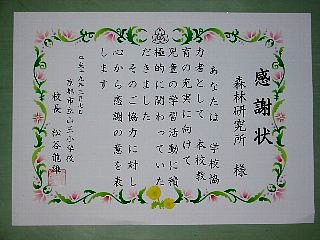 感謝状
森林研究所 様
あなたは 学校協
力者として 本校教
育の充実に向けて
児童の学習活動に積
極的に関わっていた
だきました
そのご協力に対し
心から感謝の意を表
します
校長 松谷能雄